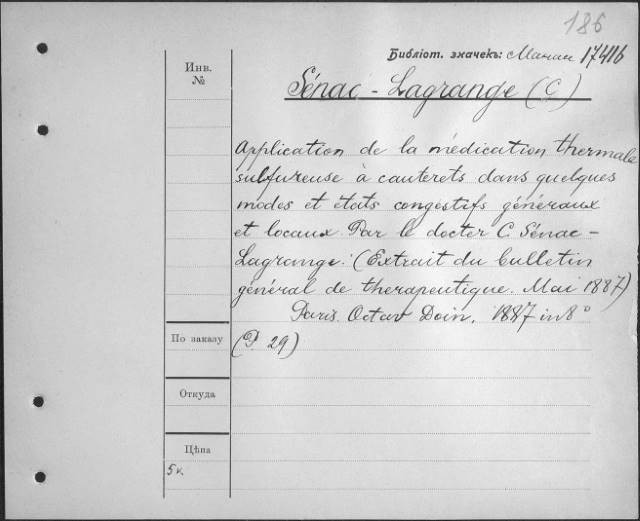 186
Библіот. значекъ: Маган 17416
Инв.
№
Sénac - Lagrange (C)
Application de la médication thermale
sulfureuse à cauterets dans quelques
modes et états congestifs généraux
et locaux. Par le docter C. Sénac -
Lagrange. (Extrait du bulletin
général de therapeutique. Mai 1887)
Paris. Octav Doin. 1887 in 8°
По заказу
(P. 29)
Откуда
Цѣна
5к.